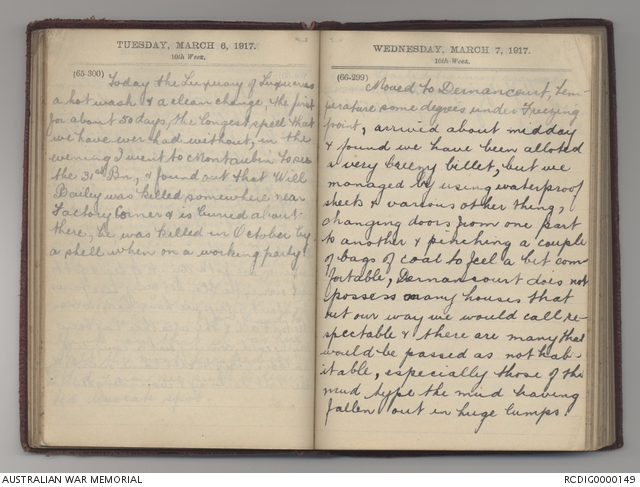 TUESDAY, MARCH 6, 1917.
10th Week.
(65-300)
Today the Luxuary of Luxuries
a hot wash & a clean change, the first
for about 50 days, the longest spell that
we have ever had without, in the
evening I went to Montaubin to see
the 31st Bn, & found out that Will
Baily was killed somewhere near
Factory Corner & is buried about
there, he was killed in October by
a shell when on a working party.
WEDNESDAY, MARCH 7, 1917.
10th Week.
(66-299)
Moved to Dernancourt, tem-
perature some degrees under Freezing
point, arrived about midday
& found we have been alloted
a very breezy billet, but we
managed by using waterproof
sheets & various other things,
changing doors from one part
to another & pinching a couple
of bags of coal to feel a bit com
fortable, Dernancourt does not
possess many houses that
out our way we would call re-
spectable & there are many that
would be passed as not hab-
itable, especially those of the
mud type the mud having
fallen out in huge lumps.
AUSTRALIAN WAR MEMORIAL
RCDIG0000149